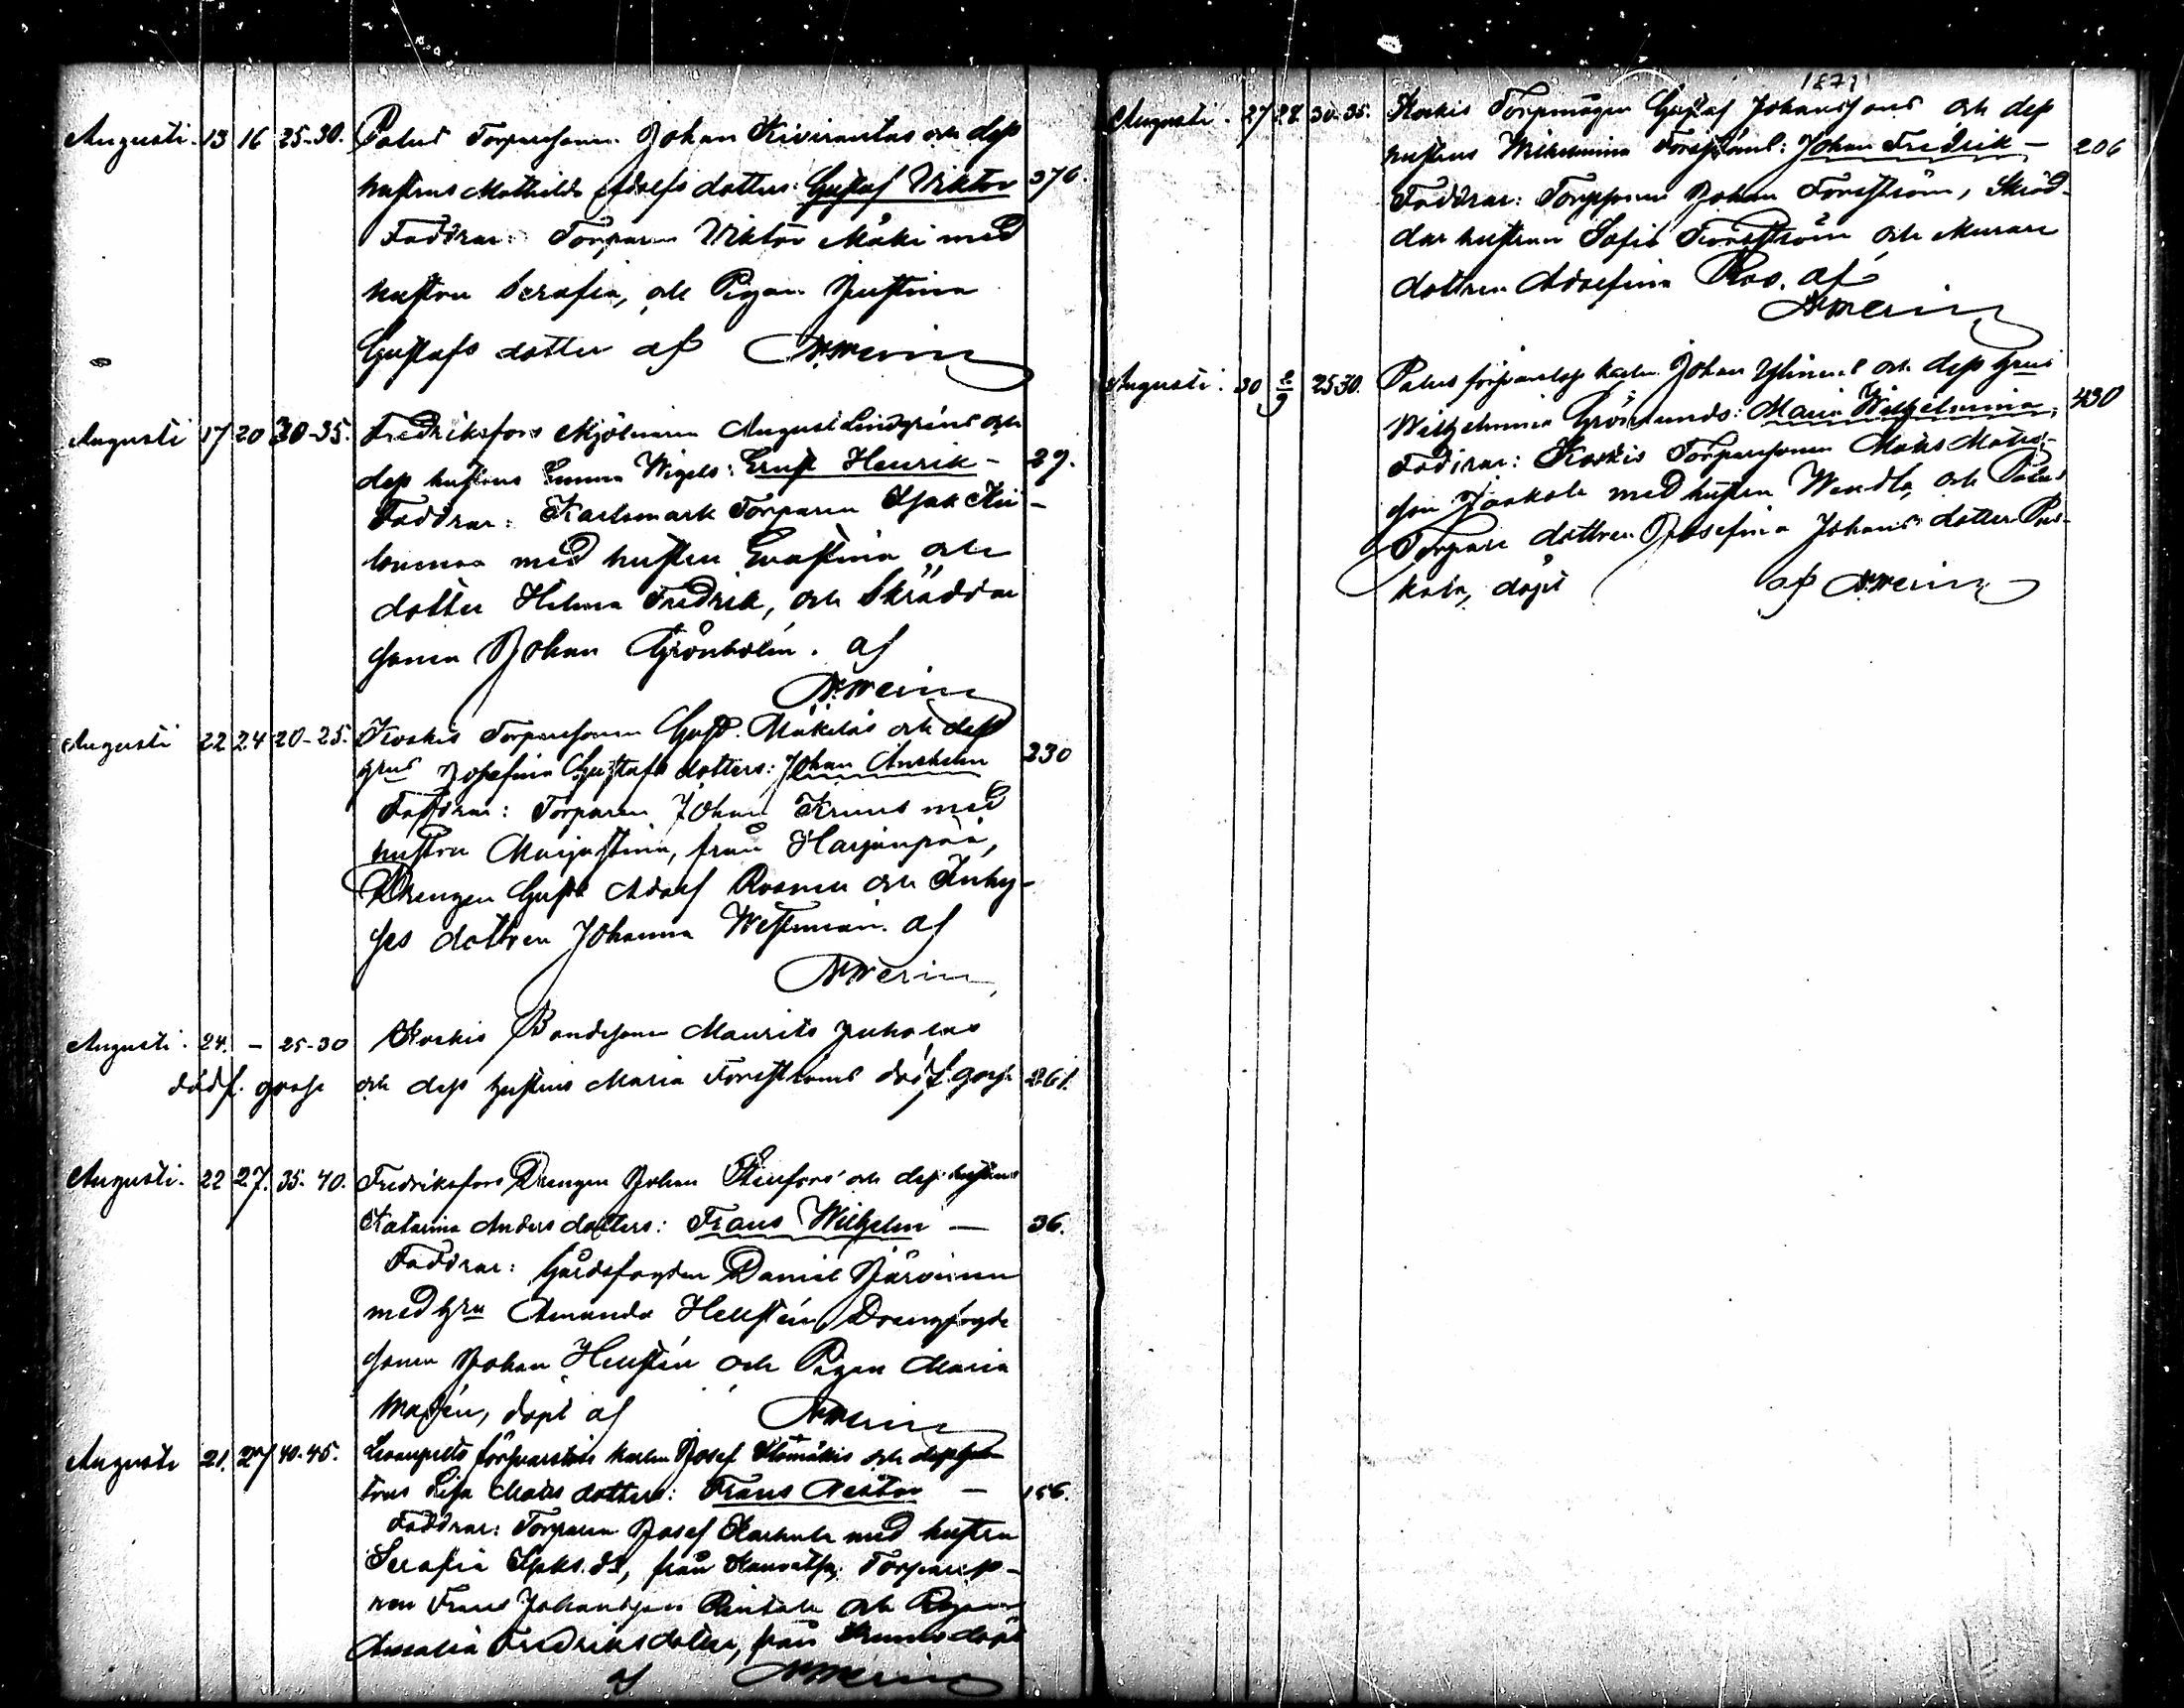 Augusti 13 16 25-30. Palus Torparesonen Johan Kivirantas och dess
hustrus Mathilda Adolfs dotters: Gustaf Viktor 376.
Faddrar: Torparen Viktor Mäki med
hustru Serafia, och Pigan Justina
Gustafs dotter af
Augusti 17 20 30-35. Fredriksfors Mjölnaren August Lindgréns och
dess hustrus Emma Wigels: Ernst Henrik - 29.
Faddrar: Karlsmark Torparen Isak Kii-
lunmaa med hustru Evastina och
dotter Hilma Fredrik, och Skräddar
sonen Johan Grönholm. af
Augusti 22 24 20-25. Koskis Torparesonen Gust. Mäkeläs och dess
hrus Josefina Gustafs dotters: Johan Anshelm 230
Faddrar: Torparen Johan Kruus med
hustru Marjastina, från Harjunpää,
Drengen Gustaf Adolf Rosnell och Inhy-
ses dottren Johanna Westman. af
Augusti 24. - 25-30 Koskis Bondesonen Maurits Juholas
dödf. gosse och dess hustrus Maria Forsströms dödf. gosse 261.
Augusti. 22 27. 35-40. Fredriksfors Drengen Johan Stenfors och dess hustrus
Katarina Anders dotters: Frans Wilhelm - 36.
Faddrar: Gårdsfogden Daniel Järvinen
med hru Amanda Hellstén, Drengfogde
sonen Johan Hellstén och Pigan Maria
, döpt af
Augusti 21. 27 40-45. försvarslös karlen Josef och dess hus-
trus Lisa Mats dotters: Frans Nestor - 156.
Faddrar: Torparen Josef Karhula med hustru
Serafia från Torpare
Frans Johansson Rintala och Pigan
Amalia Fredriksdotter, från döpt
af
1871
Augusti. 27 28. 30-35. Koskis Torpmågen Gustaf Johanssons och dess
hustrus Wilhelmina Forsströms: Johan Fredrik - 206
Faddrar: Torpsonen Johan Forsström, Skräd-
dar hustrun Sofia Forsström och Murare
dottren Adolfina Roo. af
Augusti. 30 2/9 25 30. Palus försvarslöse karlen Johan Ylinens och dess hrus
Wilhelmina Grönlunds: Maria Wilhelmina, 430
Faddrar: Koskis Torparesonen Mats Mats-
son Jaakola med hustru Wendla, och Palus
Torpare dottren Josefina Johans dotter
kala, döpt af